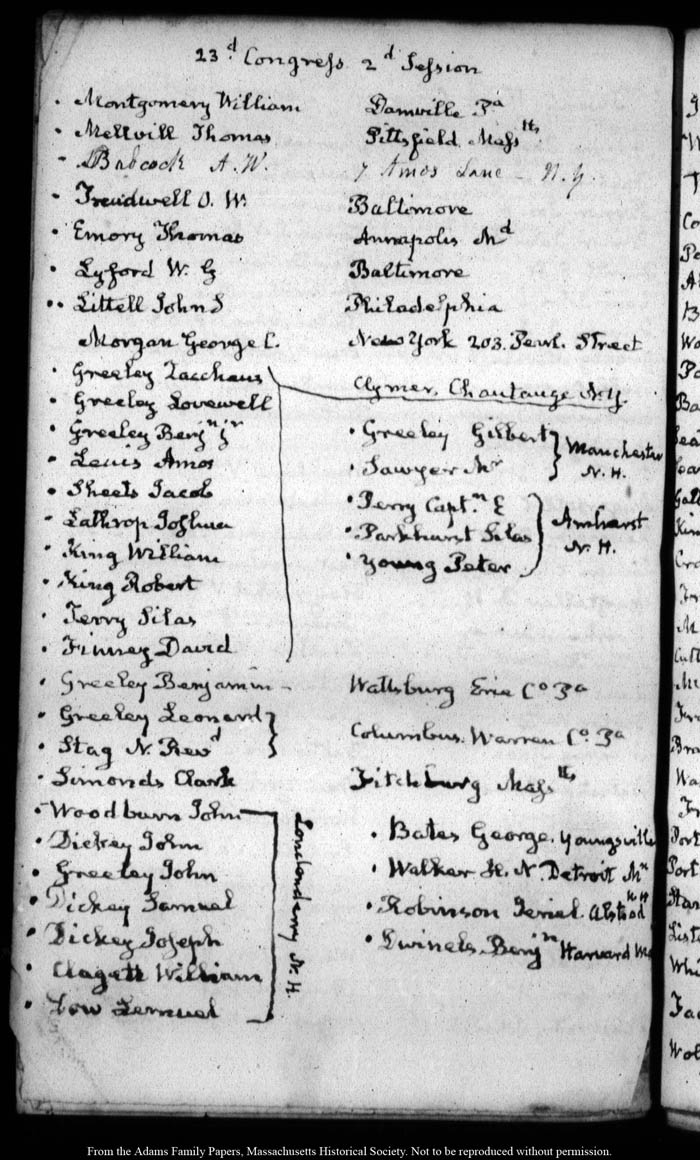 23.d Congress 2d Session
• Montgomery William Danville Pa
• Mellvill Thomas Pittsfield Masstts
- Babcock A. W. 7 Amos Lane - N. Y.
• Treudwell O. W. Baltimore
• Emory Thomas Annapolis Md
• Lyford W. G Baltimore
•• Littell John S Philadelphia
Morgan George C. New York 203. Pearl. Street
• Greeley Zacchaus Clymer, Chautauge N.Y.
• Greeley Lovewell
• Greeley Benjn jr
• Greeley Gilbert Manchester N. H.
• Lewis Amos
• Sawyer Mr
• Sheets Jacob
• Perry Captn E Amherst N. H.
• Lathrop Joshua
• Parkhurst Silas
• King William
• Young Peter
• King Robert
• Terry Silas
• Finney David
• Greeley Benjamin - Wattsburg Erie Co Pa
• Greeley Leonard
• Stag N. Revd Columbus. Warren Co. Pa
• Simonds Clark Fitchburg Masstts
• Woodburn John Londonderry N. H.
• Bates George. Youngsville
• Dickey John
• Walker H. N. Detroit Mn
• Greeley John
• Dickey Samuel
• Robinson Alstead N H
• Dickey Joseph
• Dwinels Benjn Harvard
• Clagett William
• Low Lemuel
From the Adams Family Papers, Massachusetts Historical Society. Not to be reproduced without permission.